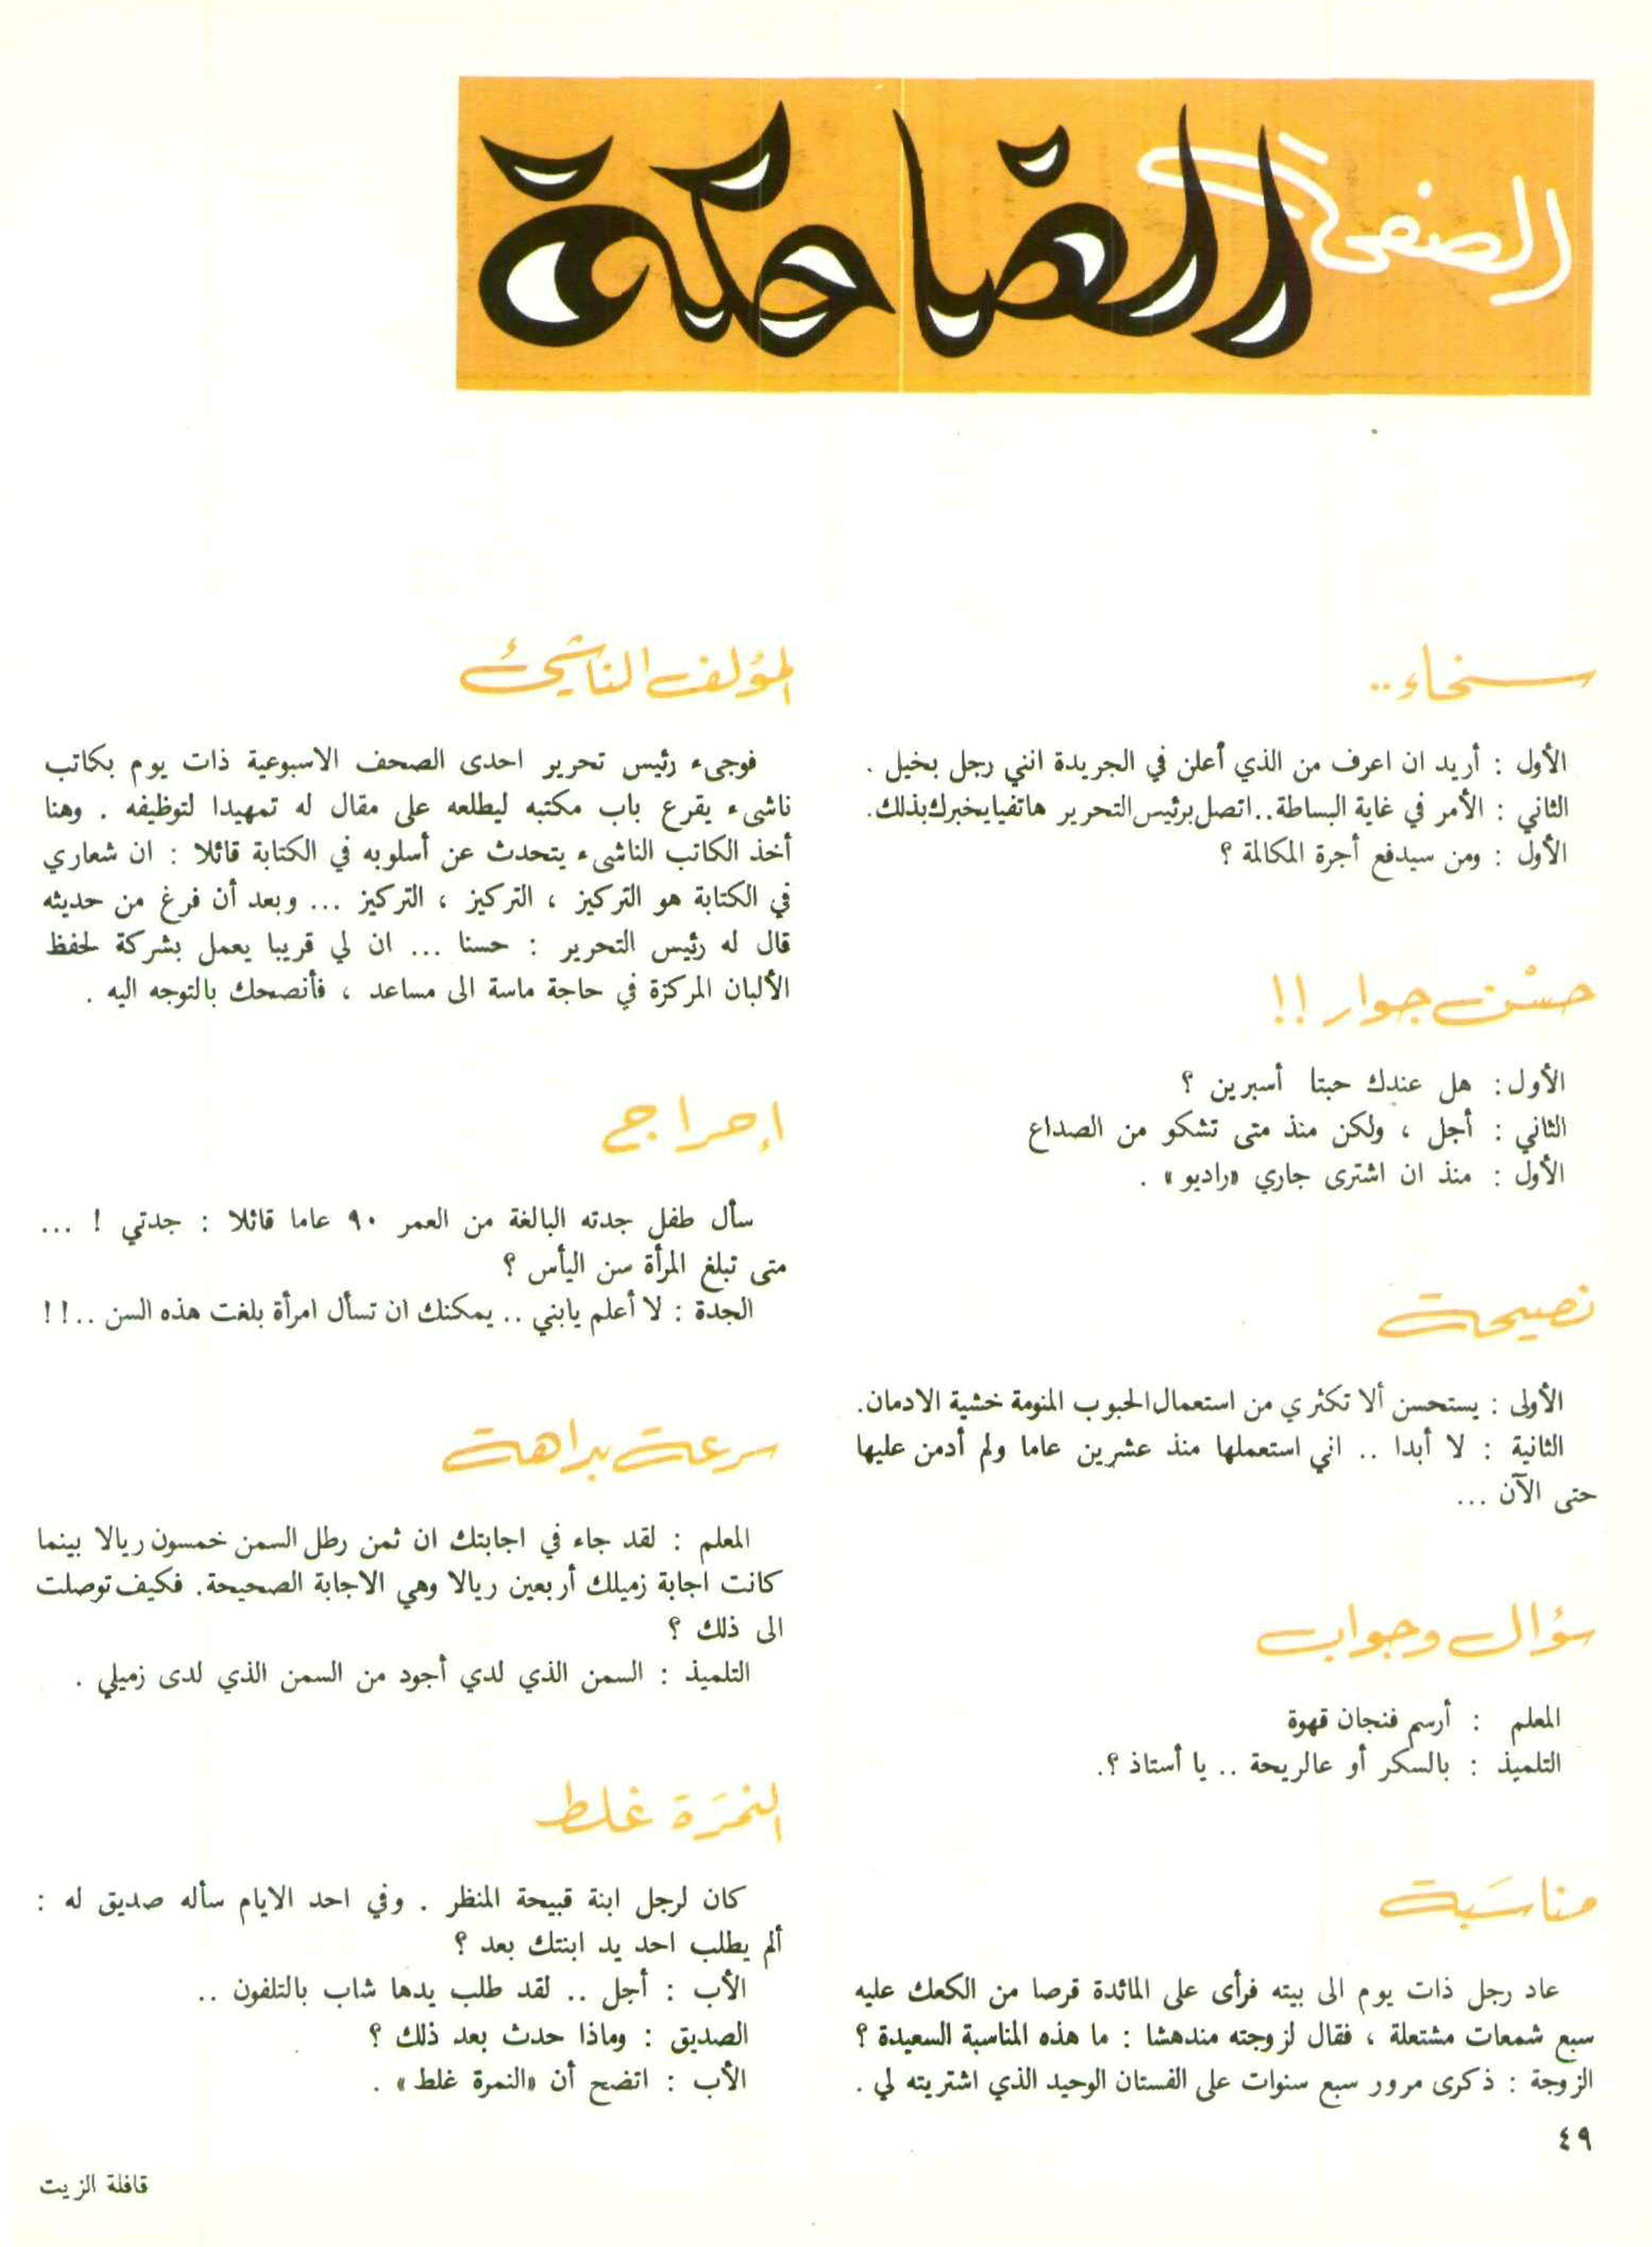 الصفحة الضاحكة
سخاء..
الأول : أريد ان اعرف من الذي أعلن في الجريدة انني رجل بخيل .
الثاني : الأمر في غاية البساطة.. اتصل برئيس التحرير هاتفيا يخبرك بذلك.
الأول : ومن سيدفع أجرة المكالمة ؟
حسْن جوار !!
الأول : هل عندك حبتا أسبرين ؟
الثاني : أجل ، ولكن منذ متى تشكو من الصداع
الأول : منذ ان اشترى جاري «راديو» .
نصيحة
الأولى : يستحسن ألا تكثري من استعمال الحبوب المنومة خشية الادمان.
الثانية : لا أبدا .. اني استعملها منذ عشرين عاما ولم أدمن عليها
حتى الآن ...
سؤال وجواب
المعلم : أرسم فنجان قهوة
التلميذ : بالسكر أو عالريحة .. يا أستاذ ؟.
مناسَبة
عاد رجل ذات يوم الى بيته فرأى على المائدة قرصا من الكعك عليه
سبع شمعات مشتعلة ، فقال لزوجته مندهشا : ما هذه المناسبة السعيدة ؟
الزوجة : ذكرى مرور سبع سنوات على الفستان الوحيد الذي اشتريته لي .
المؤلف الناشئ
فوجىء رئيس تحرير احدى الصحف الاسبوعية ذات يوم بكاتب
ناشىء يقرع باب مكتبه ليطلعه على مقال له تمهيدا لتوظيفه . وهنا
أخذ الكاتب الناشىء يتحدث عن أسلوبه في الكتابة قائلا : ان شعاري
في الكتابة هو التركيز ، التركيز ، التركيز ... وبعد أن فرغ من حديثه
قال له رئيس التحرير : حسنا ... ان لي قريبا يعمل بشركة لحفظ
الألبان المركزة في حاجة ماسة الى مساعد ، فأنصحك بالتوجه اليه .
إحراج
سأل طفل جدته البالغة من العمر ٩٠ عاما قائلا : جدتي ! ...
متى تبلغ المرأة سن اليأس ؟
الجدة : لا أعلم يابني .. يمكنك ان تسأل امرأة بلغت هذه السن ..!!
سرعة بداهة
المعلم : لقد جاء في اجابتك ان ثمن رطل السمن خمسون ريالا بينما
كانت اجابة زميلك أربعين ريالا وهي الاجابة الصحيحة. فكيف توصلت
الى ذلك ؟
التلميذ : السمن الذي لدي أجود من السمن الذي لدى زميلي .
النمَرة غلط
كان لرجل ابنة قبيحة المنظر . وفي احد الايام سأله صديق له :
ألم يطلب احد يد ابنتك بعد ؟
الأب : أجل .. لقد طلب يدها شاب بالتلفون ..
الصديق : وماذا حدث بعد ذلك ؟
الأب : اتضح أن «النمرة غلط» .
٤٩
قافلة الزيت